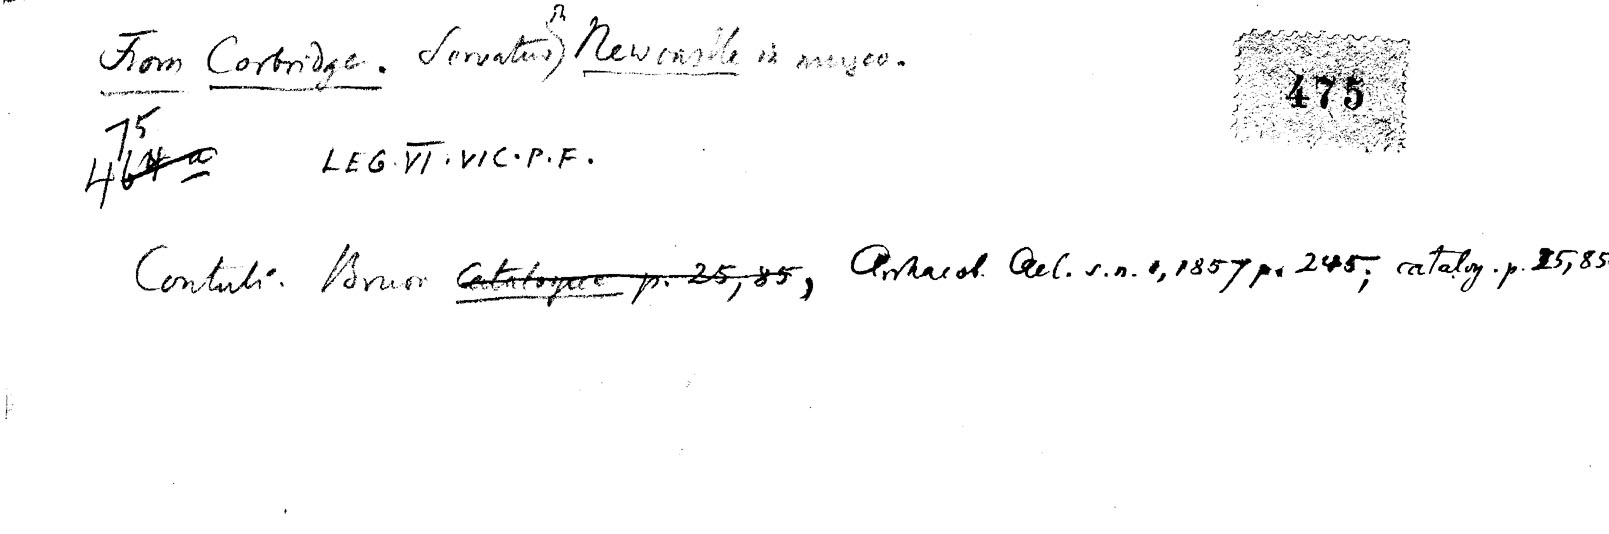 From Corbridge. Servatur in Newcastle in museo.
475
75
464 a
LEG.VI.VIC.P.F.
Contuli. Bruce Catalogue p. 25,85, Archaeol. Ael. s.n. 1, 1857 p. 245; catalog. p. 25,85